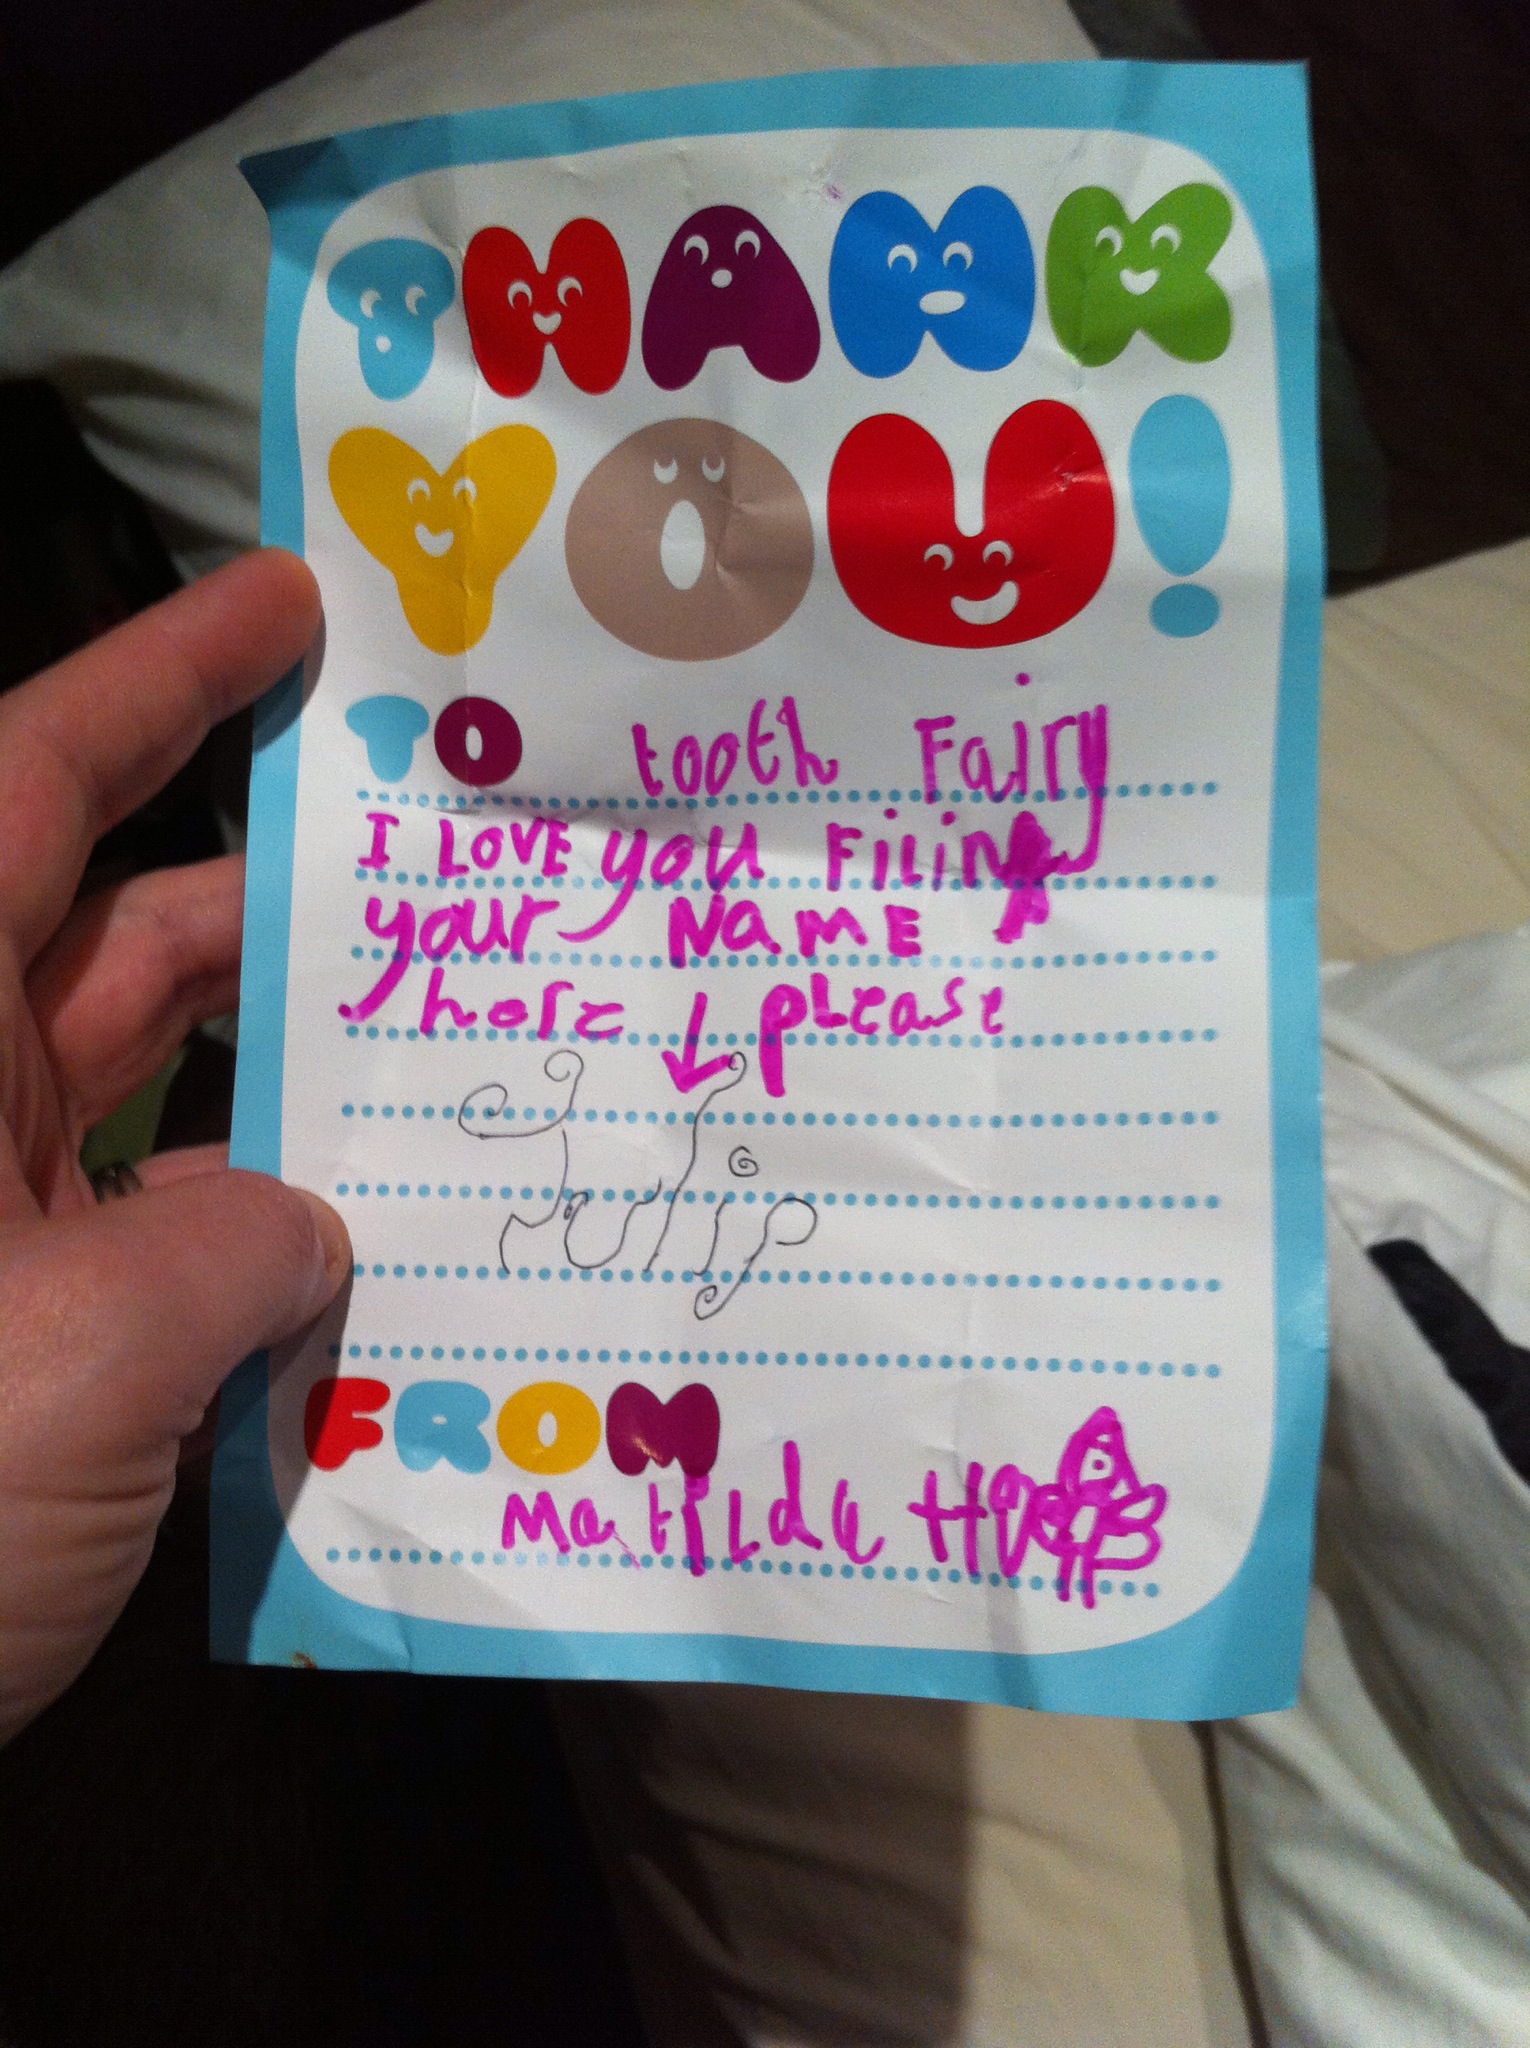 THANK
YOU!
TO tooth Fairy
I LOVE you Filing
your NaME
here ↓ please
Tulip
FROM
Matilda